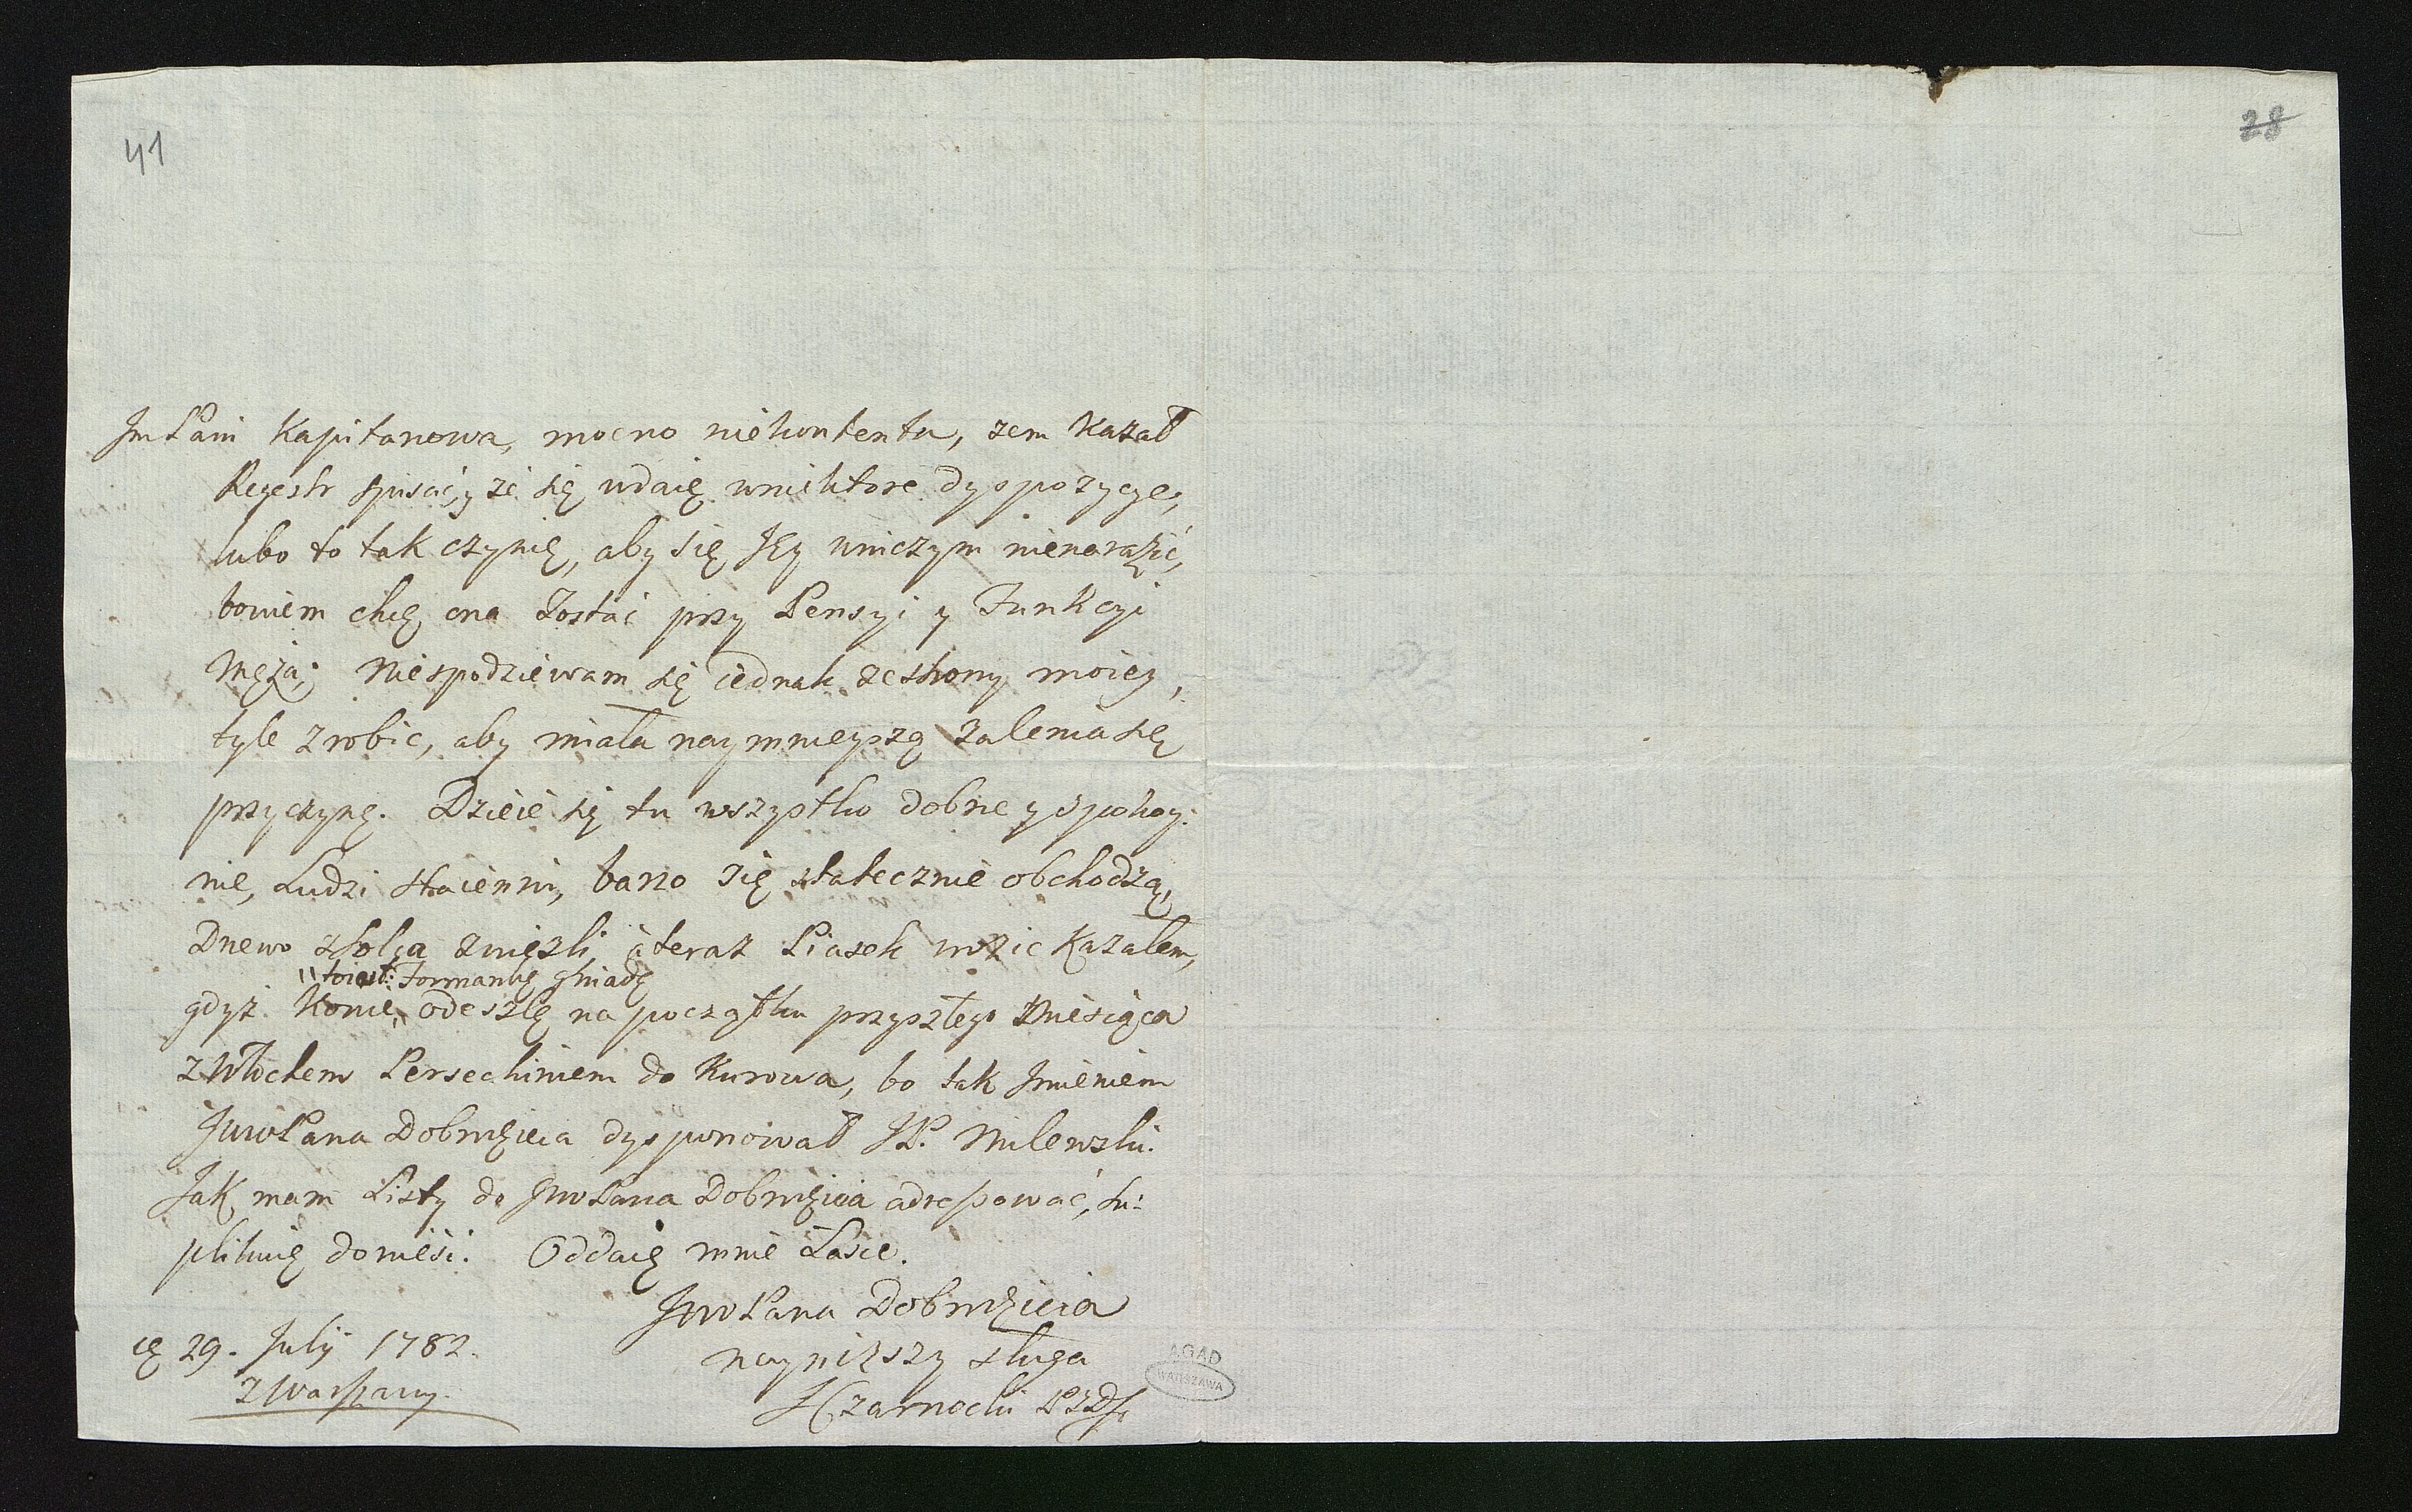 41
28
Jm Pani Kapitanowa, mocno niekontenta, zem Kazał
Regestr spisać, y że się udaię wniektore dyspozycye,
lubo to tak czynię, aby się Jey wniczym nienarazić,
bowiem chcę ona Zostać przy Pensyi y Funkcyi
Męża; Niespodziewam się iednak zestrony moiey,
tyle zrobic, aby miała naymnieyszą żalenia się
przyczynę. Dzieie się tu wszystko dobrze y Spokoy:
nie, Ludzi staienni, barzo się statecznie obchodzą,
Drzewo zSolca zwiezli, á teraz Piasek wozic Kazałem,
„toiest: Formankę gniadę
gdyż Konie„ odeszlę na początku przyszłego Miesiąca
z Włochem Persechiniem do Kurowa, bo tak Jmieniem
JmwPana Dobrodzieia dysponował JP. Milewski.
Jak mam Listy do JmwPana Dobrodzieia adressować, su:
plikuię donieść. Oddaię mnie Łasce.
JmwPana Dobrodzieia
nayniższy sługa
JCzarnocki
29. Julij 1782.
zWarszawy.
AGAD
WARSZAWA